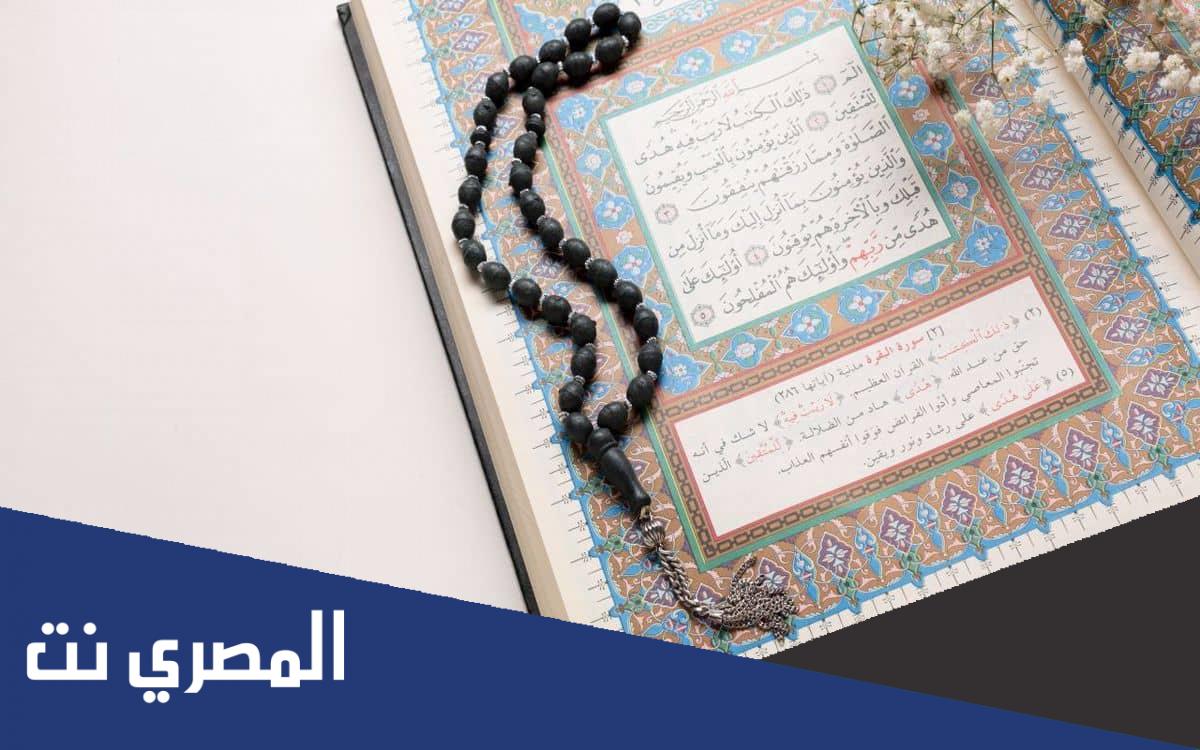 بِسْمِ ٱللَّهِ ٱلرَّحْمَٰنِ ٱلرَّحِيمِ
الٓمٓ ١ ذَٰلِكَ ٱلْكِتَٰبُ لَا رَيْبَ فِيهِ هُدًى
لِّلْمُتَّقِينَ ٢ ٱلَّذِينَ يُؤْمِنُونَ بِٱلْغَيْبِ وَيُقِيمُونَ
ٱلصَّلَوٰةَ وَمِمَّا رَزَقْنَٰهُمْ يُنفِقُونَ ٣
وَٱلَّذِينَ يُؤْمِنُونَ بِمَآ أُنزِلَ إِلَيْكَ وَمَآ أُنزِلَ مِن
قَبْلِكَ وَبِٱلْأَخِرَةِ هُمْ يُوقِنُونَ ٤ أُو۟لَٰٓئِكَ عَلَىٰ
هُدًى مِّن رَّبِّهِمْ وَأُو۟لَٰٓئِكَ هُمُ ٱلْمُفْلِحُونَ ٥
[٢] سورة البقرة مدنية (آياتها ٢٨٦)
(٢) ﴿ذَٰلِكَ ٱلْكِتَٰبُ﴾ القرآن العظيم. ﴿لَا رَيْبَ فِيهِ﴾ لا شك في أنه
حق من عند الله. ﴿هُدًى﴾ هاد من الضلالة. ﴿لِّلْمُتَّقِينَ﴾ الذين
تجنبوا المعاصي وأدوا الفرائض فوقوا أنفسهم العذاب.
(٥) ﴿عَلَىٰ هُدًى﴾ على رشاد ونور ويقين.
المصري نت